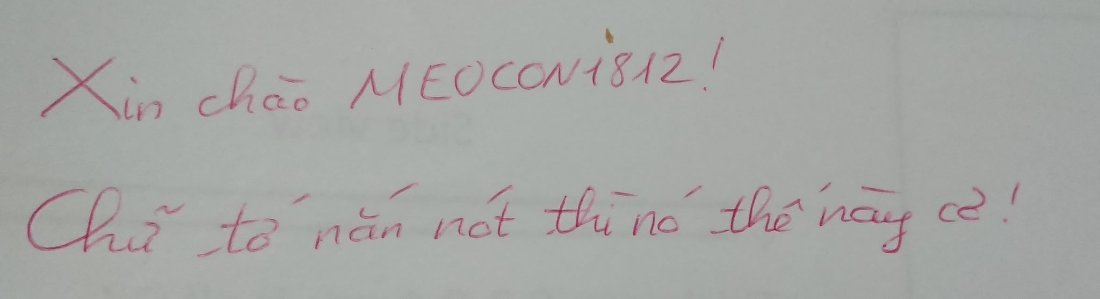 Xin chào MEOCON1812!
Chữ tớ nắn nót thì nó thế này cơ!